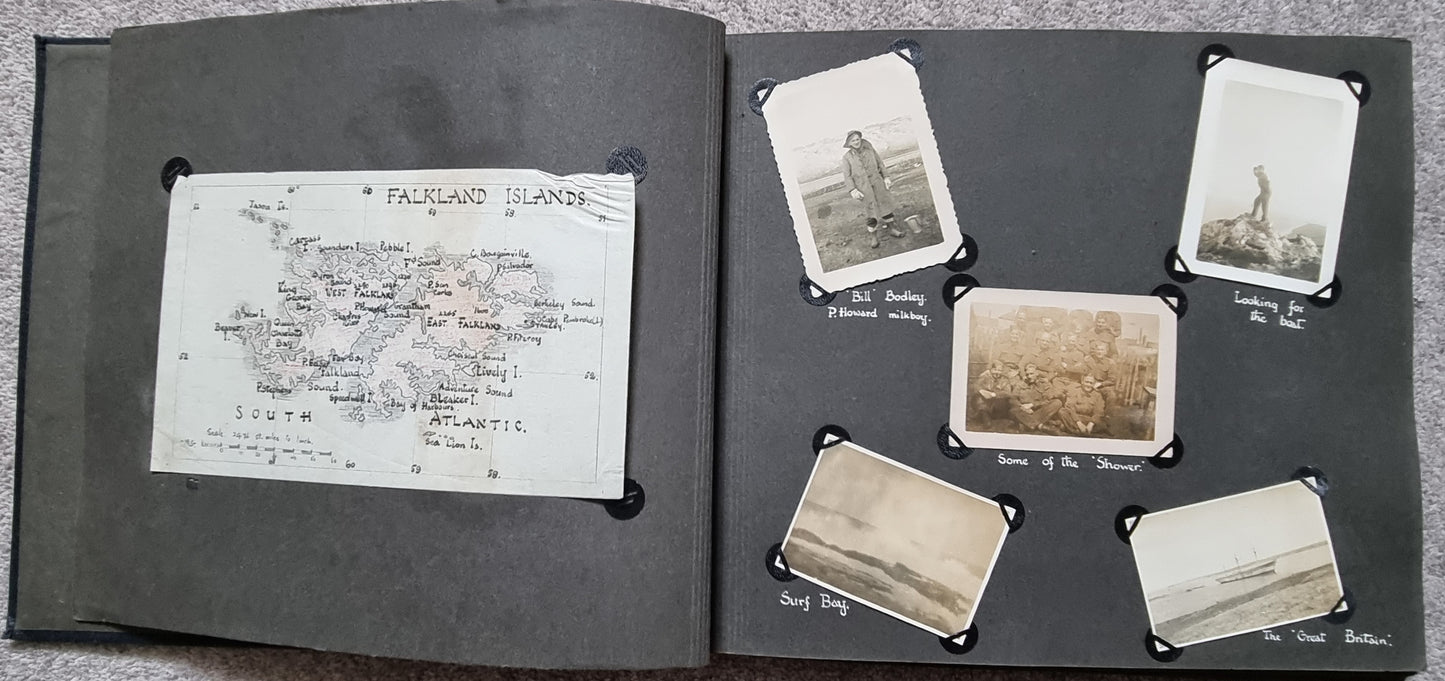 FALKLAND ISLANDS.
61
60
59
58
51
51
Jason Is.
Carcass
I.
Saunders I.
Pebble I.
C. Bougainville.
P. Salvador
Sound
King
George
Bay
WEST FALKLAND
P. San
Carlos
Berkeley Sound.
New I.
Beaver
I.
Queen
Charlotte
Bay
Sound
EAST FALKLAND
Stanley.
P. Fitzroy
52
Fox Bay
Choiseul Sound
Falkland
Lively I.
52.
P. Stephens
Sound.
Speedwell I
Adventure Sound
Bleaker I.
Bay of Harbours.
SOUTH
ATLANTIC.
Sea Lion Is.
Scale
miles to inch.
60
59
58.
"Bill" Bodley.
P. Howard milkboy.
Looking for
the boat.
Some of the "Shower."
Surf Bay.
The "Great Britain".